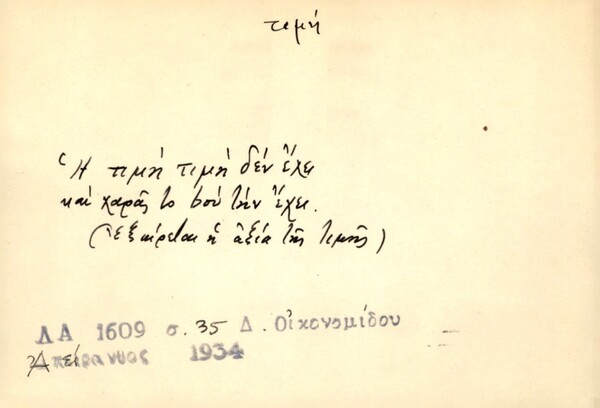 τιμή
Ἡ τιμή τιμή δέν ἔχει
και χαρᾶς το που τήν ἔχει.
(Ἐξαίρεται ἡ ἀξία τῆς τιμῆς)
ΛΑ 1609 σ. 35 Δ. Οἰκονομίδου
Ἀπείρανθος 1934